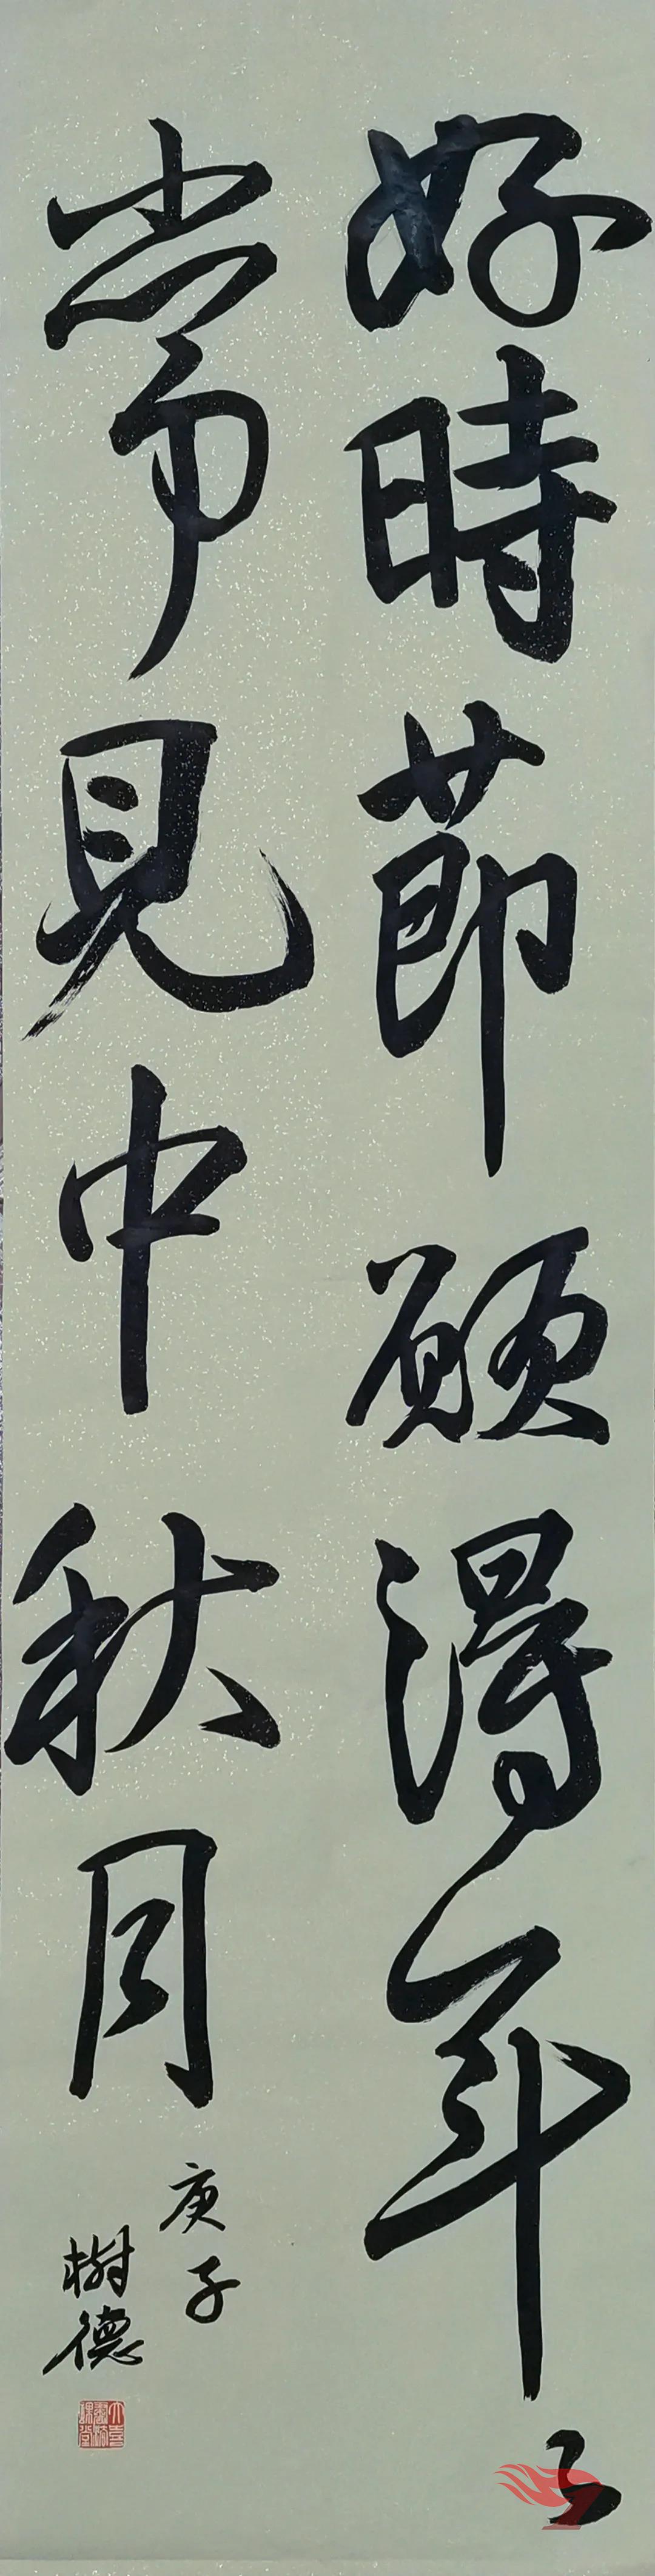 好時節願得年々
常見中秋月
庚子
樹德